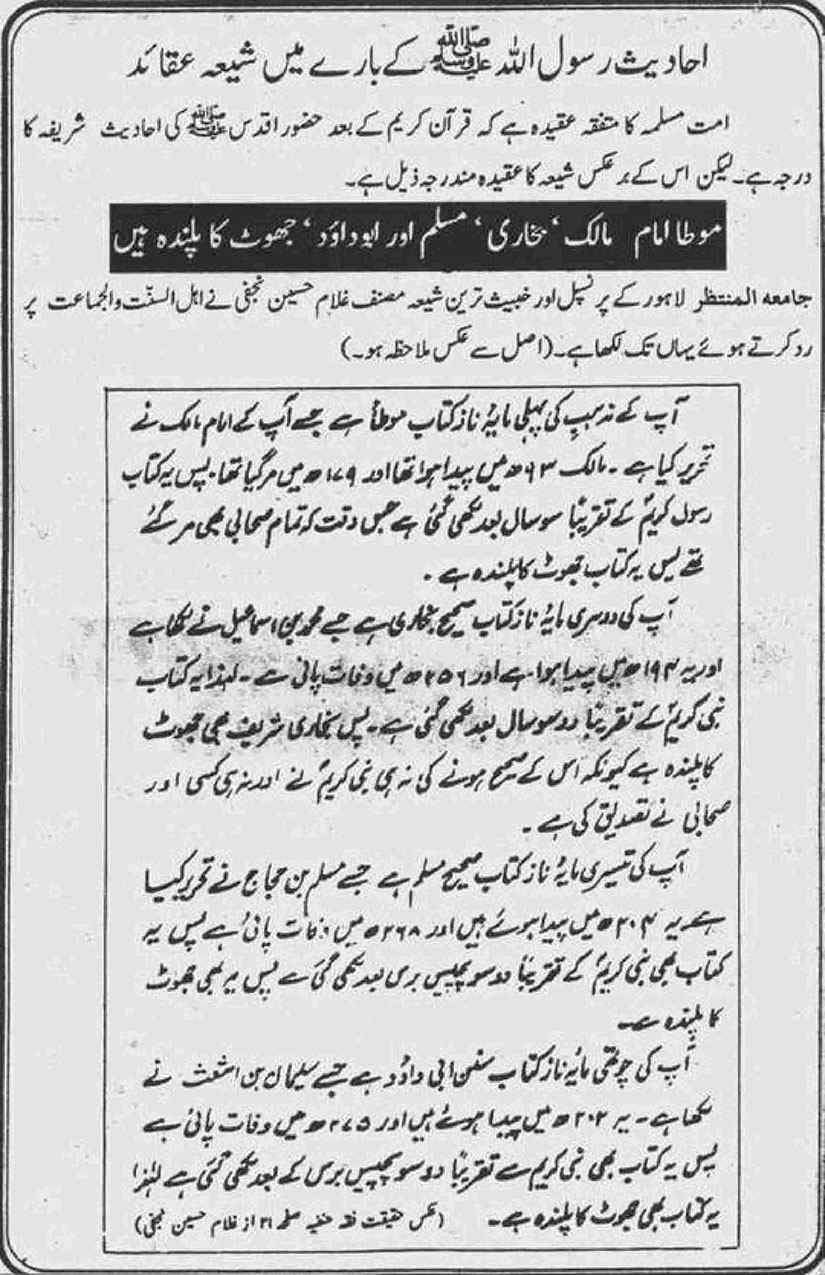 احادیث رسول اللہ ﷺ کے بارے میں شیعہ عقائد
امت مسلمہ کا متفقہ عقیدہ ہے کہ قرآن کریم کے بعد حضور اقدس ﷺ کی احادیث شریفہ کا
درجہ ہے۔ لیکن اس کے برعکس شیعہ کا عقیدہ مندرجہ ذیل ہے۔
موطا امام مالک ‘ بخاری ‘ مسلم اور ابوداؤد ‘ جھوٹ کا پلندہ ہیں
جامعہ المنتظر لاہور کے پرنسپل اور خبیث ترین شیعہ مصنف غلام حسین نجفی نے اہل السنّت والجماعت پر
رد کرتے ہوئے یہاں تک لکھا ہے۔ (اصل سے عکس ملاحظہ ہو۔)
آپ کے مذہب کی پہلی مایۂ ناز کتاب موطأ ہے جسے آپ کے امام مالک نے
تحریر کیا ہے ۔ مالک ۹۳ھ میں پیدا ہوا تھا اور ۱۷۹ھ میں مر گیا تھا۔ پس یہ کتاب
رسول کریمؐ کے تقریباً سو سال بعد لکھی گئی ہے جس وقت کہ تمام صحابی بھی مر گئے
تھے پس یہ کتاب جھوٹ کا پلندہ ہے ۔
آپ کی دوسری مایۂ ناز کتاب صحیح بخاری ہے جسے محمد بن اسماعیل نے لکھا ہے
اور یہ ۱۹۴ھ میں پیدا ہوا ہے اور ۲۵۶ھ میں وفات پائی ہے ۔ لہٰذا یہ کتاب
نبی کریمؐ کے تقریباً دو سو سال بعد لکھی گئی ہے۔ پس بخاری شریف بھی جھوٹ
کا پلندہ ہے کیونکہ اس کے صحیح ہونے کی نہ ہی نبی کریمؐ نے اور نہ ہی کسی اور
صحابی نے تصدیق کی ہے ۔
آپ کی تیسری مایۂ ناز کتاب صحیح مسلم ہے جسے مسلم بن حجاج نے تحریر کیا
ہے یہ ۲۰۴ھ میں پیدا ہوئے ہیں اور ۲۶۸ھ میں وفات پائی ہے پس یہ
کتاب بھی نبی کریمؐ کے تقریباً دو سو پچیس برس بعد لکھی گئی ہے پس یہ بھی جھوٹ
کا پلندہ ہے۔
آپ کی چوتھی مایۂ ناز کتاب سنن ابی داؤد ہے جسے سلیمان بن اشعث نے
لکھا ہے ۔ یہ ۲۰۲ھ میں پیدا ہوئے ہیں اور ۲۷۵ھ میں وفات پائی ہے
پس یہ کتاب بھی نبی کریم سے تقریباً دو سو پچیس برس کے بعد لکھی گئی ہے لہٰذا
یہ کتاب بھی جھوٹ کا پلندہ ہے۔ (عکس حقیقت فقہ حنفیہ صفحہ ۲۱ از غلام حسین نجفی)